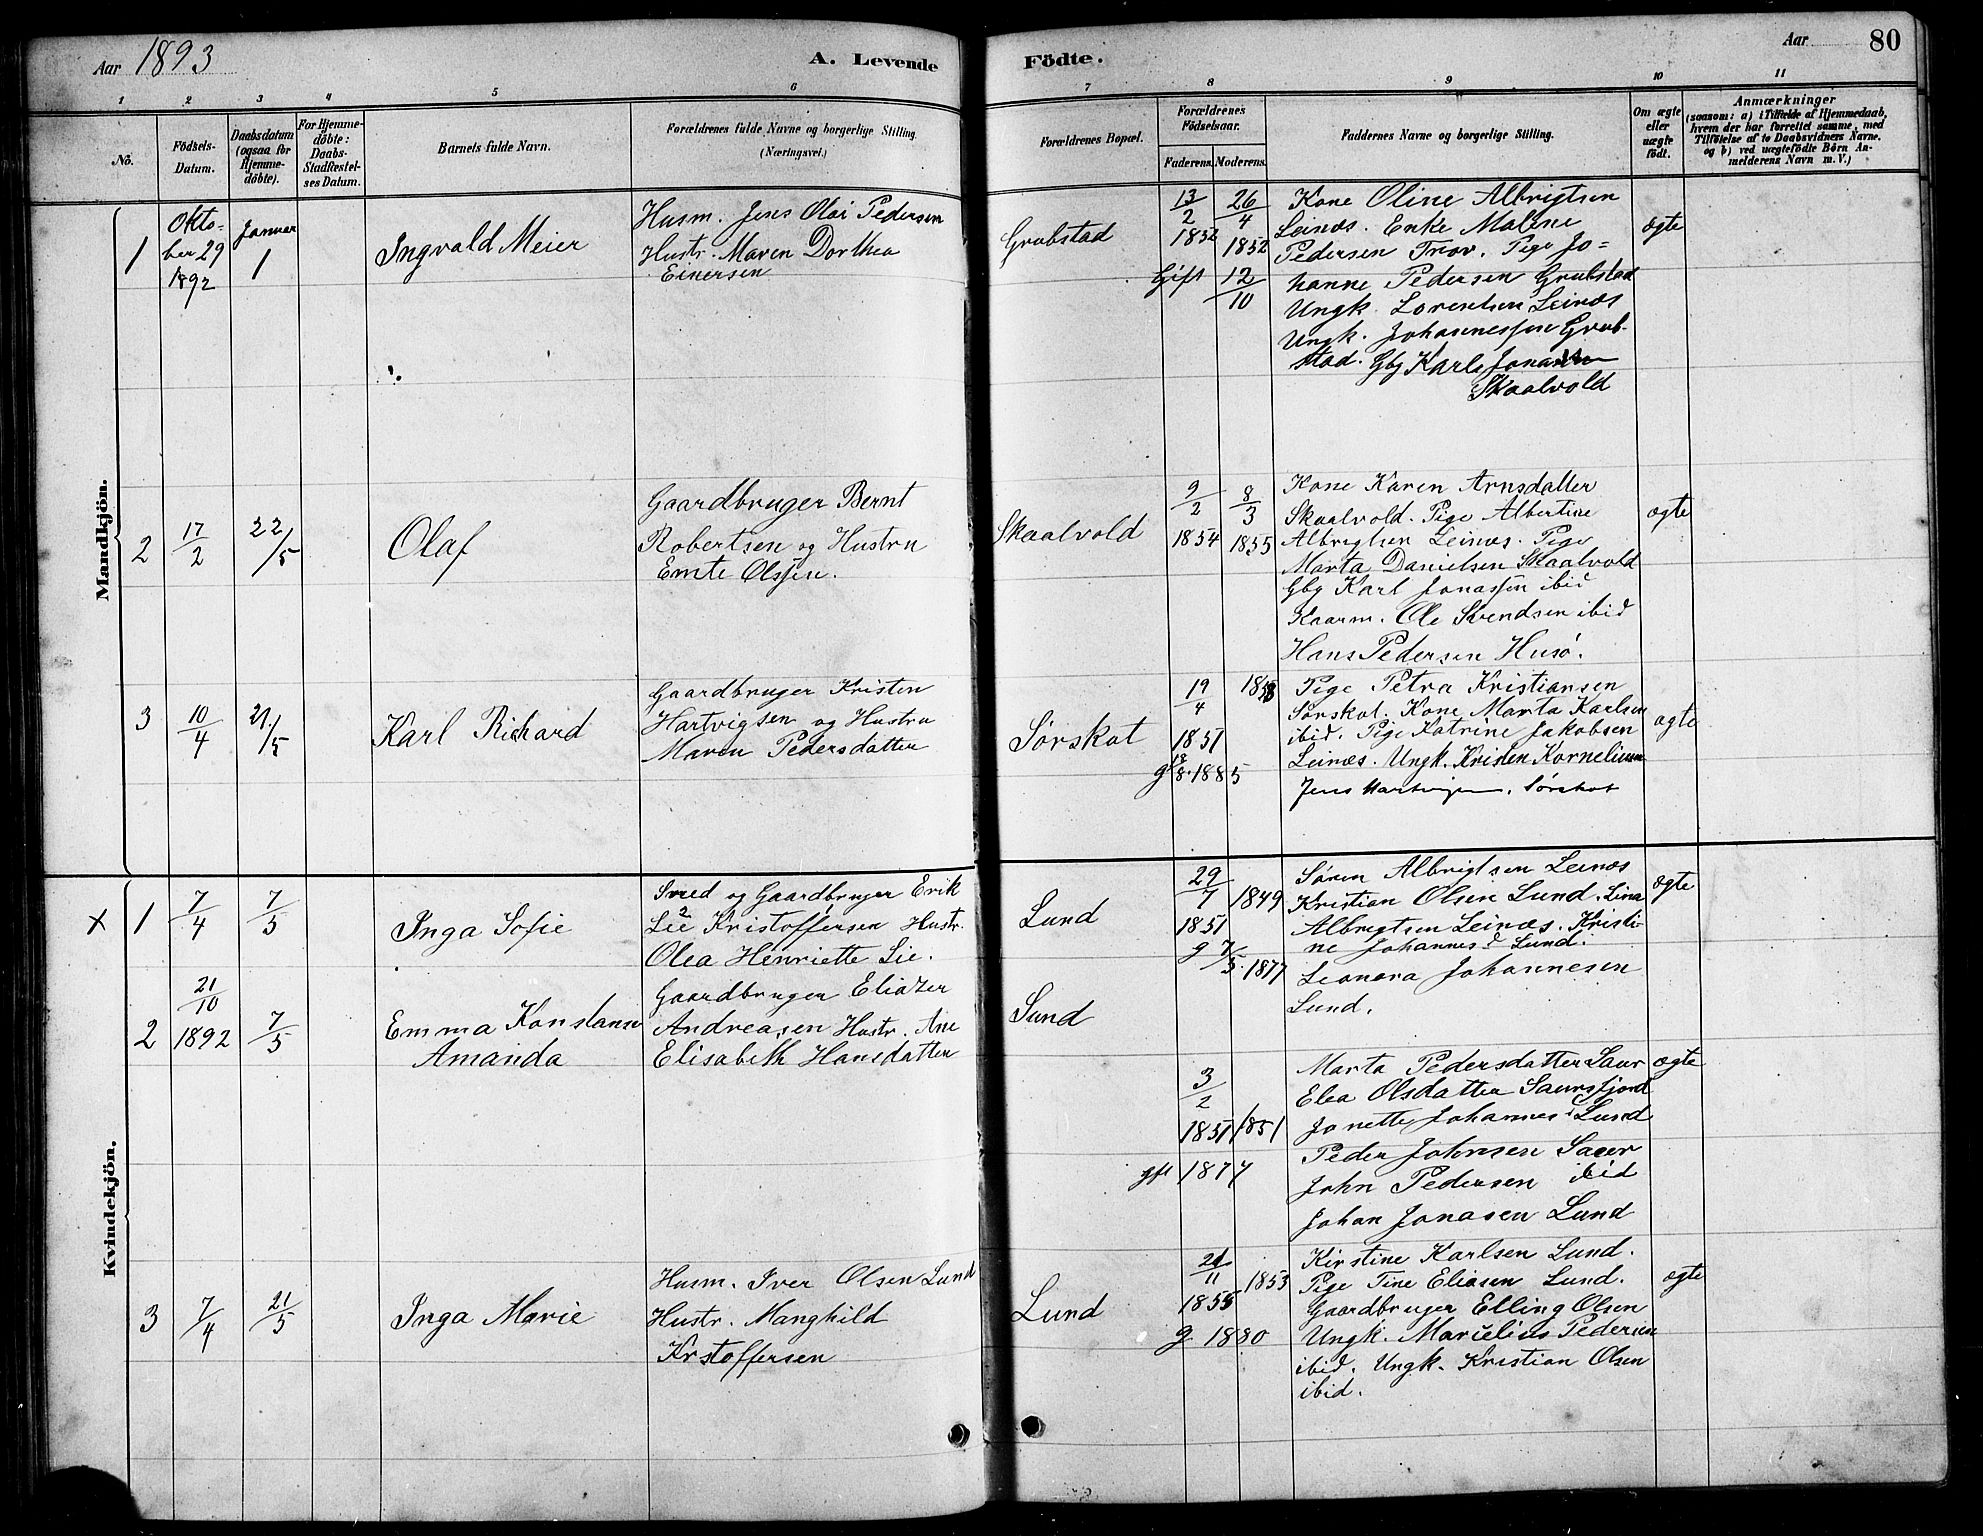 Aar 1893
A. Levende Födte.
Aar 80
1 2 3 4 5 6 7 8 9 10 11
No.
Födsels-
Datum.
Daabsdatum
(ogsaa for
Hjemme-
döbte).
For Hjemme-
döbte:
Daabs-
Stadfæstel-
ses Datum.
Barnets fulde Navn.
Forældrenes fulde Navne og borgerlige Stilling.
(Næringsvei.)
Forældrenes Bopæl.
Forældrenes
Födselsaar.
Faderens. Moderens.
Faddernes Navne og borgerlige Stilling.
Om ægte
eller
uægte
født.
Anmærkninger
(saasom: a) i Tilfælde af Hjemmedaab,
hvem der har forrettet samme, med
Tilföielse af to Daabsvidners Navne.
og b) ved uægtefödte Börn An-
melderens Navn m. V.)
Mandkjön.
1
Okto-
ber 29
1892
Januar
1
Ingvald Meier
Husm. Jens Olai Pedersen
Hustr. Maren Dorthea
Einersen
Grubstad
13/2
1852
26/4
1852
Gift 12/10
Kone Oline Albrigtsen
Leinæs. Enke Maline
Pedersen Trov. Pige Jo=
hanne Pedersen Grubstad
Ungk. Lorentsen Leinæs
Ungk. Johannessen Grub-
stad. Gbg Karl Jonassen
Skaalvold
ægte
2
17/2
22/5
Olaf
Gaardbruger Bernt
Robertsen og Hustru
Emte Olssen.
Skaalvold
9/2
1854
8/3
1855
Kone Karen Arnsdatter
Skaalvold. Pige Albertine
Albrigtsen Leinæs. Pige
Marta Danielsen Skaalvold
Gbg Karl Jonassen ibid
Kaarm. Ole Svendsen ibid
Hans Pedersen Husö.
ægte
3
10/4
21/5
Karl Richard
Gaardbruger Kristen
Hartvigsen og Hustru
Maren Pedersdatter
Sørskot
19/4
1851
1858
g 18/8 1885
Pige Petra Kristiansen
Sørskot. Kone Marta Karlsen
ibid. Pige Katrine Jakobsen
Leinæs. Ungk. Kristen Korneliussen
Jens Hartvigsen, Sørskot
ægte
Kvindekjön.
x 1
7/4
7/5
Inga Sofie
Smed og Gaardbruger Erik
Lie Kristoffersen Hustr.
Olea Henriette Lie.
Lund
29/7
1851
1849
g 7/5. 1877
Søren Albrigtsen Leinæs
Kristian Olsen Lund. Lina
Albrigtsen Leinæs. Kristi-
ne Johannesd Lund.
Leonora Johannesen
Lund.
ægte
2
21/10
1892
7/5
Emma Konstanse
Amanda
Gaardbruger Eliazer
Andreasen Hustr. Ane
Elisabeth Hansdatter
Lund
3/2
1851
1851
gft 1877
Marta Pedersdatter Saur
Elea Olsdatter Saursfjord
Jonette Johannesd Lund
Peder Johnsen Saur
John Pedersen ibid
Johan Jonasen Lund
ægte
3
7/4
21/5
Inga Marie
Husm. Iver Olsen Lund
Hustr. Manghild
Krstoffersen
Lund
21/11
1855
1853
g 1880
Kirstine Karlsen Lund.
Pige Tine Eliasen Lund.
Gaardbruger Elling Olsen
Ungk. Marelius Pedersen
ibid. Ungk. Kristian Olsen
ibid.
ægte